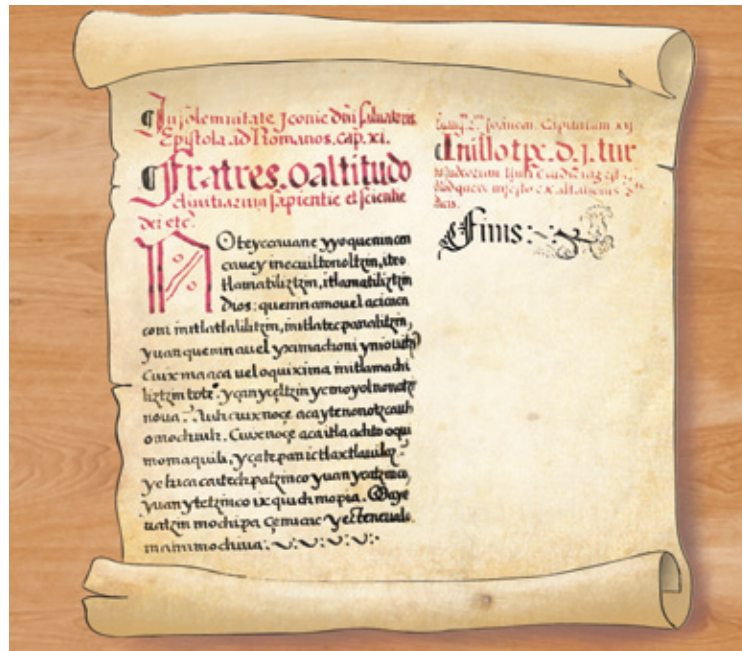 ¶ In solemnitate Iconie dni saluatoris
Epistola ad Romanos. cap. xi.
¶ Fratres. o altitudo
diuitiarum sapientie et scientie
dei etc.
Oteyccauane yyo quenin cen
ca uey inecuiltonoltzin, ateo
tlamatiliztzin, itlamatiliztzin
Dios: quenin amo uel acicaca
coni initlatlaliliztzin, initlatecpanaliztzin,
yuan quenin auel yximachoni ynioui
Cuix ma aca uel oquixima initlamachi
liztzin tote ycan yceltzin yemoyolnonotz
noua. Auh cuix noçe aca ytenonotzcauh
omochiuh. Cuix noçe aca itla achto oqui
momaquili, yçatepan ictlaxtlauiliz
yehica ca itechpatzinco yuan ycatzinco,
yuan ytetzinco ix quich mopia. Ma ye
uatzin mochipa çemicac yecteneualo
ma in mochiua:
Capitulum xij
¶ In illo tpe. d. j. tur
dicis.
Finis: